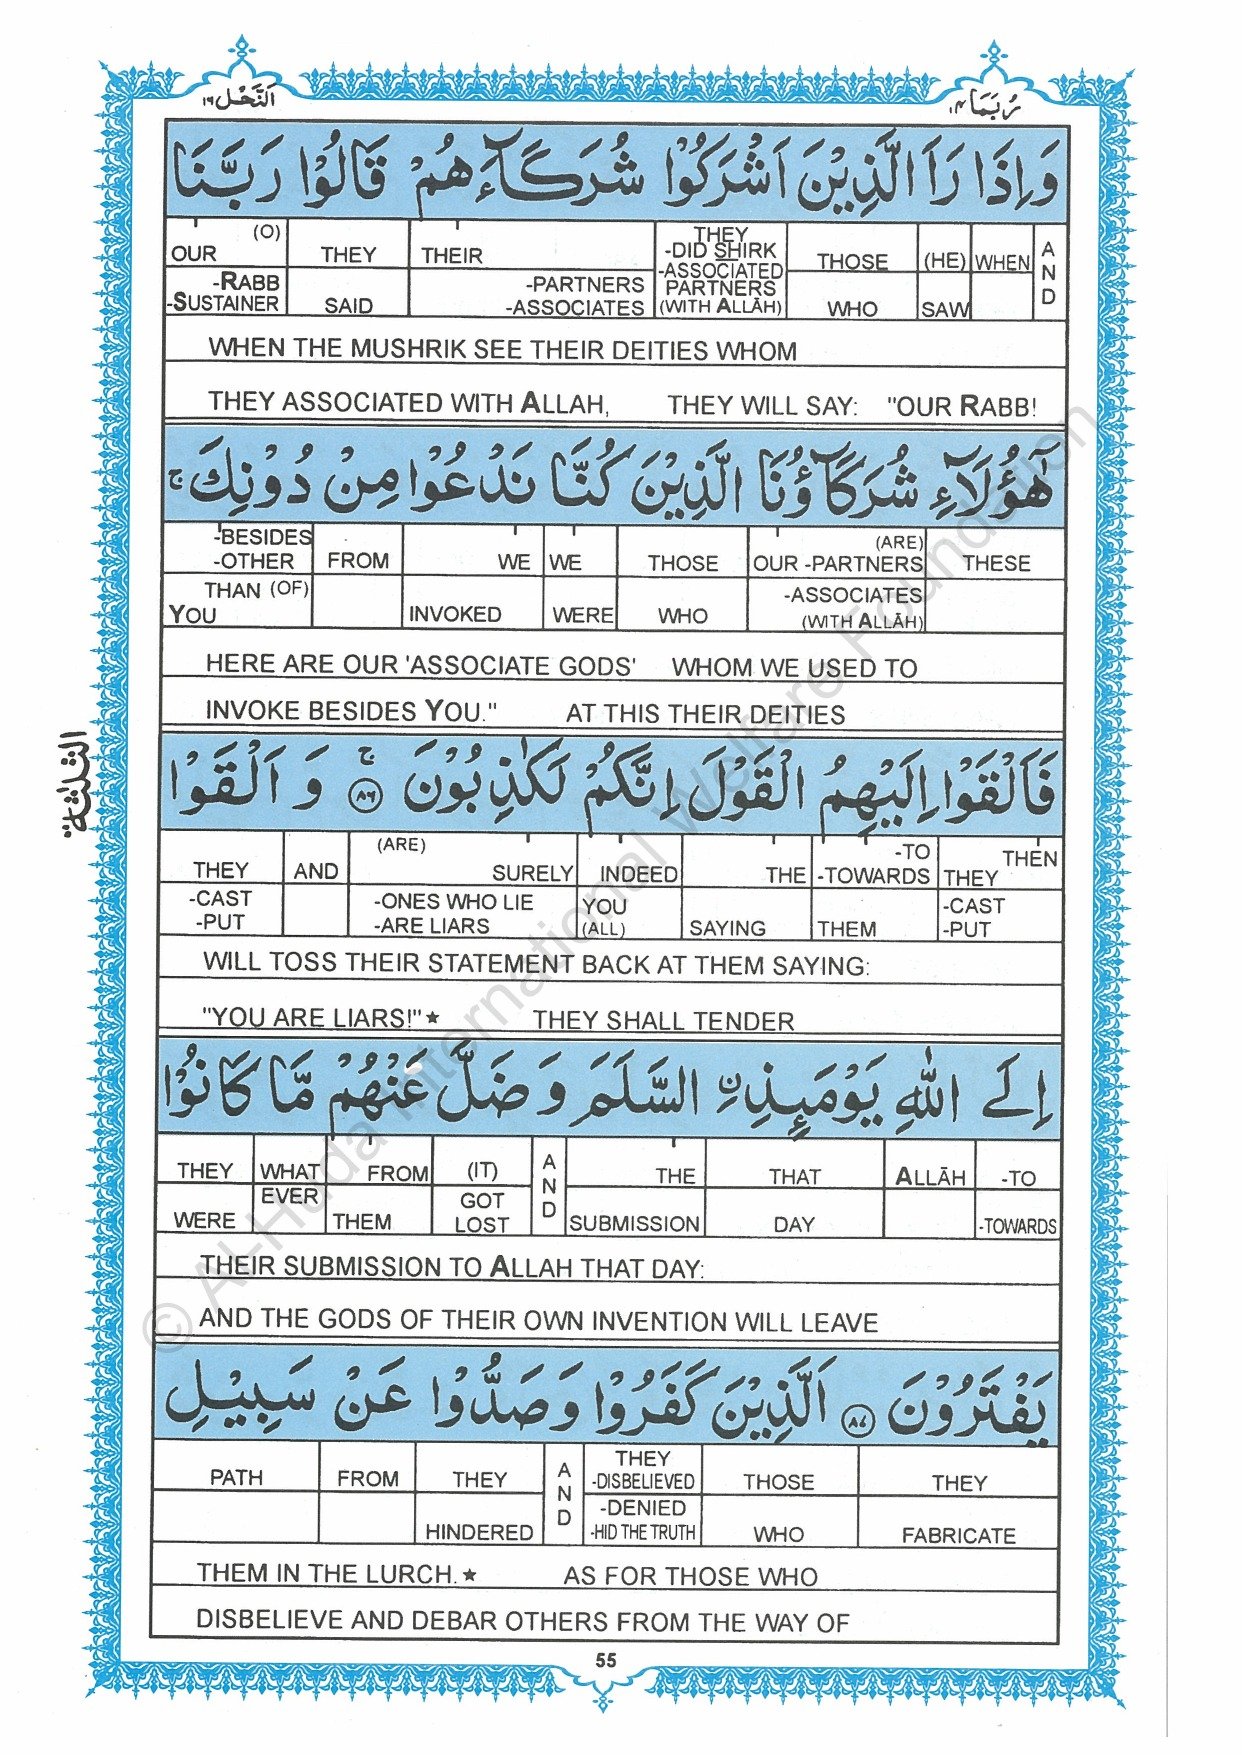 رُبَمَا ١٤
اَلنَّحْل ١٦
وَاِذَا رَاَ الَّذِيْنَ اَشْرَكُوْا شُرَكَآءَهُمْ قَالُوْا رَبَّنَا
AND WHEN (HE) SAW THOSE WHO THEY -DID SHIRK -ASSOCIATED PARTNERS (WITH ALLĀH) THEIR -PARTNERS -ASSOCIATES THEY SAID (O) OUR -RABB -SUSTAINER
WHEN THE MUSHRIK SEE THEIR DEITIES WHOM
THEY ASSOCIATED WITH ALLAH, THEY WILL SAY: "OUR RABB!
هٰٓؤُلَآءِ شُرَكَآؤُنَا الَّذِيْنَ كُنَّا نَدْعُوْا مِنْ دُوْنِكَ ۚ
THESE (ARE) OUR -PARTNERS -ASSOCIATES (WITH ALLĀH) THOSE WHO WE WERE WE INVOKED FROM -BESIDES -OTHER THAN (OF) YOU
HERE ARE OUR 'ASSOCIATE GODS' WHOM WE USED TO
INVOKE BESIDES YOU." AT THIS THEIR DEITIES
الثلثة
فَاَلْقَوْا اِلَيْهِمُ الْقَوْلَ اِنَّكُمْ لَكٰذِبُوْنَ ۚ ٨٦ وَ اَلْقَوْا
THEN THEY -CAST -PUT -TO -TOWARDS THEM THE SAYING INDEED YOU (ALL) SURELY (ARE) -ONES WHO LIE -ARE LIARS AND THEY -CAST -PUT
WILL TOSS THEIR STATEMENT BACK AT THEM SAYING:
"YOU ARE LIARS!"★ THEY SHALL TENDER
اِلَى اللّٰهِ يَوْمَىِٕذِ ِۨ السَّلَمَ وَ ضَلَّ عَنْهُمْ مَّا كَانُوْا
-TO -TOWARDS ALLĀH THAT DAY THE SUBMISSION AND (IT) GOT LOST FROM THEM WHAT EVER THEY WERE
THEIR SUBMISSION TO ALLAH THAT DAY:
AND THE GODS OF THEIR OWN INVENTION WILL LEAVE
يَفْتَرُوْنَ ٨٧ اَلَّذِيْنَ كَفَرُوْا وَ صَدُّوْا عَنْ سَبِيْلِ
THEY FABRICATE THOSE WHO THEY -DISBELIEVED -DENIED -HID THE TRUTH AND THEY HINDERED FROM PATH
THEM IN THE LURCH.★ AS FOR THOSE WHO
DISBELIEVE AND DEBAR OTHERS FROM THE WAY OF
55
© Al-Huda International Welfare Foundation